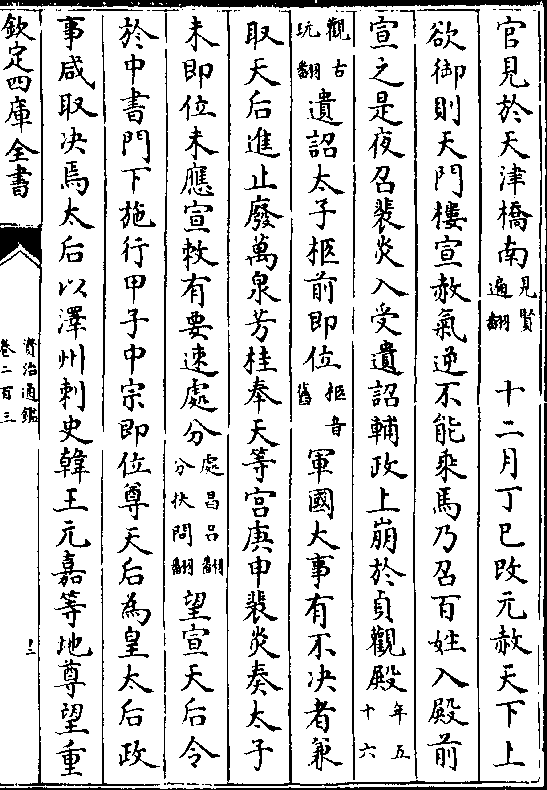 官見於天津橋南見賢遍翻十二月丁巳改元赦天下上
欲御則天門樓宣赦氣逆不能乘馬乃召百姓入殿前
宣之是夜召裴炎入受遺詔輔政上崩於貞觀殿年五十六
觀古玩翻遺詔太子柩前即位柩音舊軍國大事有不決者兼
取天后進止廢萬泉芳桂奉天等宮庚申裴炎奏太子
未即位未應宣敕有要速處分處昌呂翻分扶問翻望宣天后令
於中書門下施行甲子中宗即位尊天后為皇太后政
事咸取决焉太后以澤州刺史韓王元嘉等地尊望重
欽定四庫全書
資治通鑑
卷二百三
十三